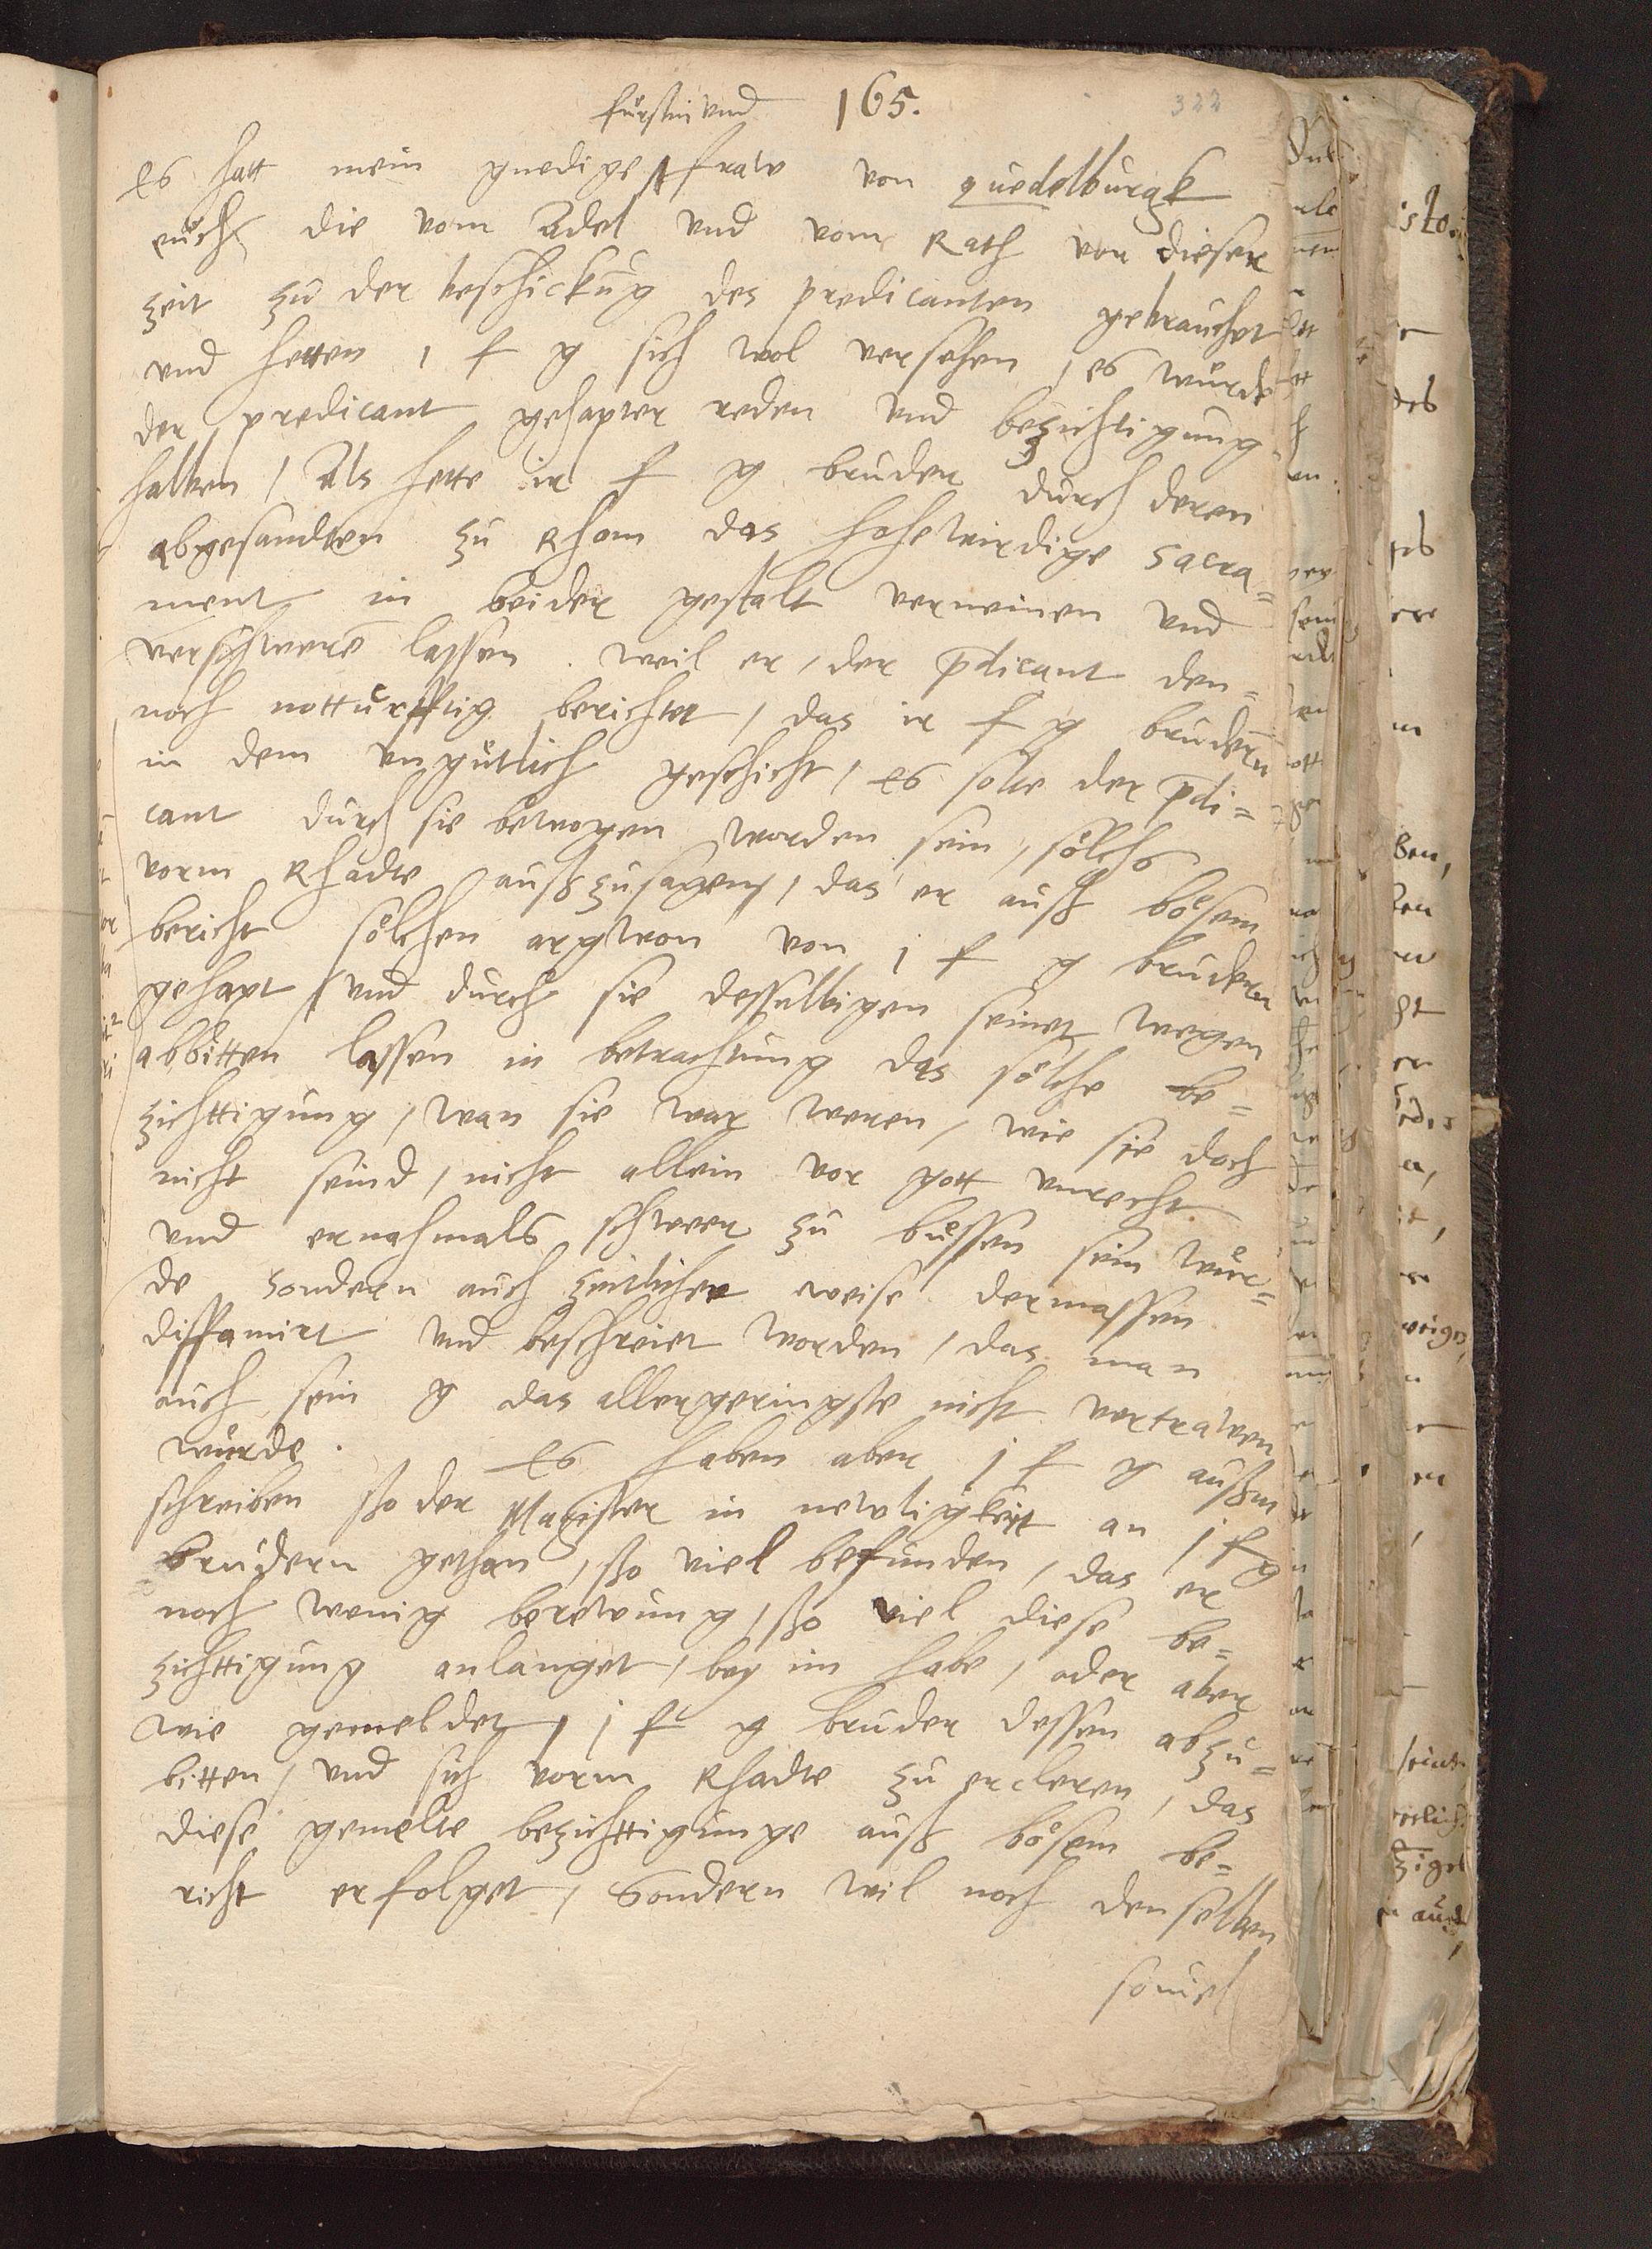 fürstin vnd 165. 322
Es hatt mein gnedige fraw von quedelburgk
euch die vom Adel vnd vom Rath vor dieser
zeit zu der beschickug des predicanten gebrauchet
vnd hetten i f g sich wol versehen, es würde
der predicant gehapter reden vnd bezichtigung
halben, Als hette ir f g bruder durch deren
abgesandten zu Rhom das hohewirdige Sacra=
ment in beider gestalt verneinen vnd
verschwerē lassen. weil er, der p̄dicant den=
noch notturfftig berichtet, das ir f g brudern
in dem vngütlich geschicht, Es solte der p̄di=
cant durch sie bewogen worden sein, sölchs
vorm Rhadte außzusagen, das er auß bösem
bericht sölchen argwon von i f g brudern
gehapt vnd durch sie desselbigen seinet wegen
abbitten lassen in betrachtung das sölche be=
zichttigung, wan sie war weren, wie sie doch
nicht seind, nicht allein vor gott vnrecht
vnd ernahmals schwer zu büssen sein wür=
de sondern auch zeitlicher weise dermassen
diffamirt vnd beschreiet worden, das man
auch sein g das allergeringste nicht vertrawen
würde. Es haben aber i f g außm
schreiben ßo der Magister in newligkeit an i f g
brudern gethan, ßo viel befunden, das er
noch wenig berewung, ßo viel diese be=
zichttigung anlanget, bey im habe, oder aber
wie gemeldet, i f g bruder dessen abzu=
bitten, vnd sich vorm Rhadte zu ercleren, das
diese gemelte bezichttigunge auß bösem be=
richt erfolget, Sondern wil noch denselben
souiel